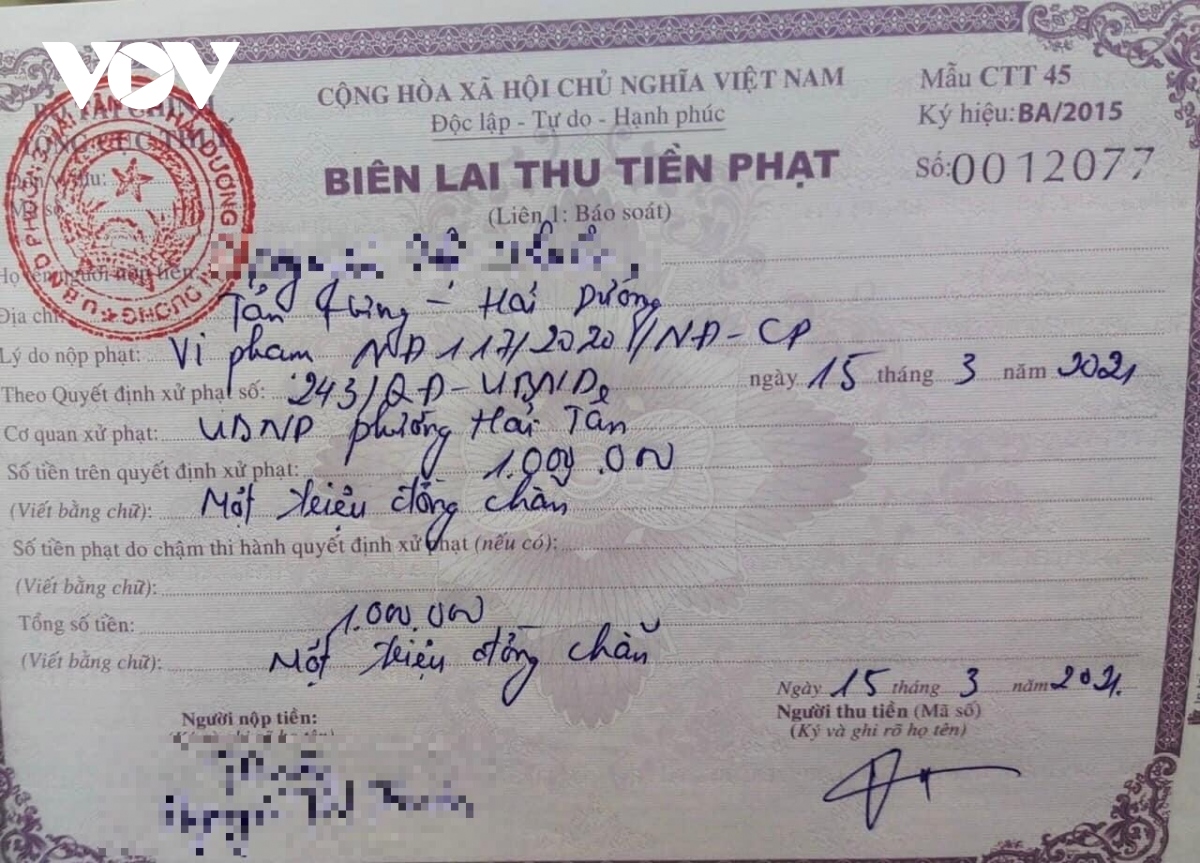 VOV
CỘNG HÒA XÃ HỘI CHỦ NGHĨA VIỆT NAM
Độc lập - Tự do - Hạnh phúc
Mẫu CTT 45
Ký hiệu: BA/2015
Số: 0012077
BIÊN LAI THU TIỀN PHẠT
(Liên 1: Báo soát)
Họ tên người nộp tiền:
Địa chỉ: Tân Hưng - Hải Dương
Lý do nộp phạt: Vi phạm NĐ 117/2020/NĐ-CP
Theo Quyết định xử phạt số: 243/QĐ-UBND ngày 15 tháng 3 năm 2021
Cơ quan xử phạt: UBND phường Hải Tân
Số tiền trên quyết định xử phạt: 1.000.000
(Viết bằng chữ): Một triệu đồng chẵn
Số tiền phạt do chậm thi hành quyết định xử phạt (nếu có):
(Viết bằng chữ):
Tổng số tiền: 1.000.000
(Viết bằng chữ): Một triệu đồng chẵn
Ngày 15 tháng 3 năm 2021.
Người nộp tiền:
Người thu tiền (Mã số)
(Ký và ghi rõ họ tên)